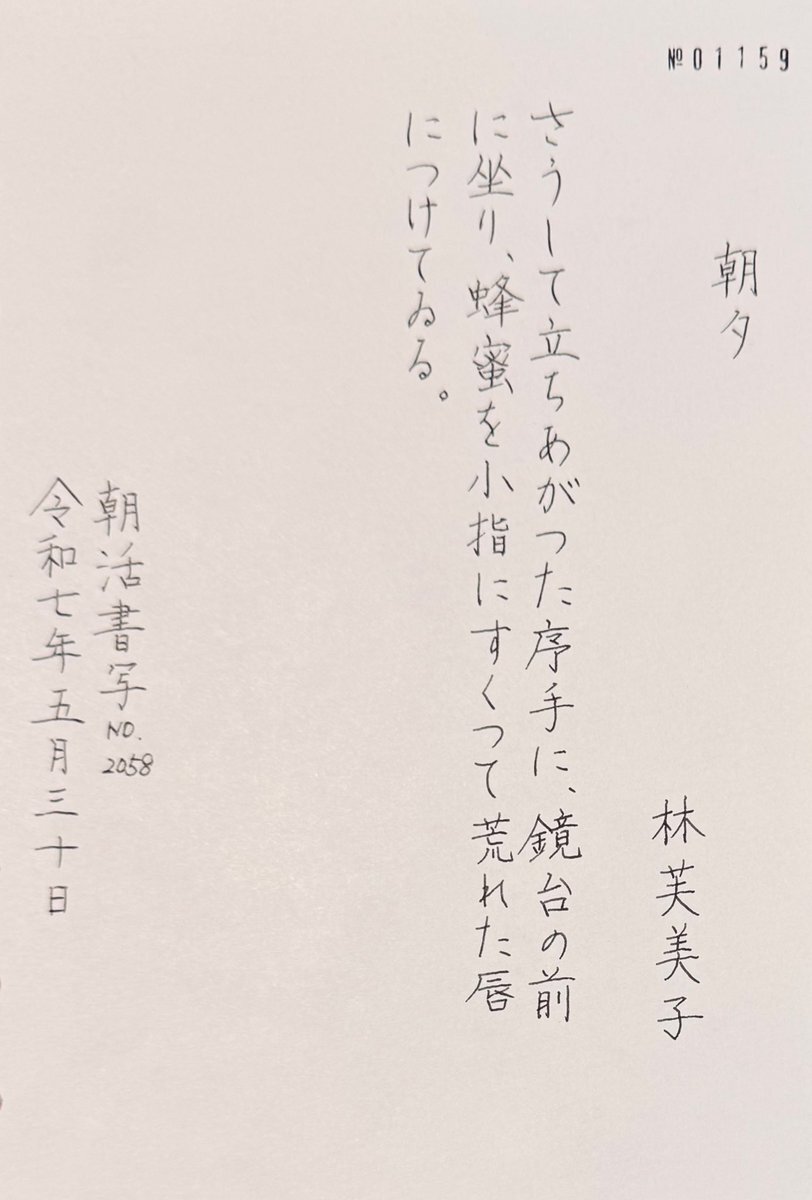 №01159
朝夕
林芙美子
さうして立ちあがつた序手に、鏡台の前
に坐り、蜂蜜を小指にすくつて荒れた唇
につけてゐる。
朝活書写NO.2058
令和七年五月三十日